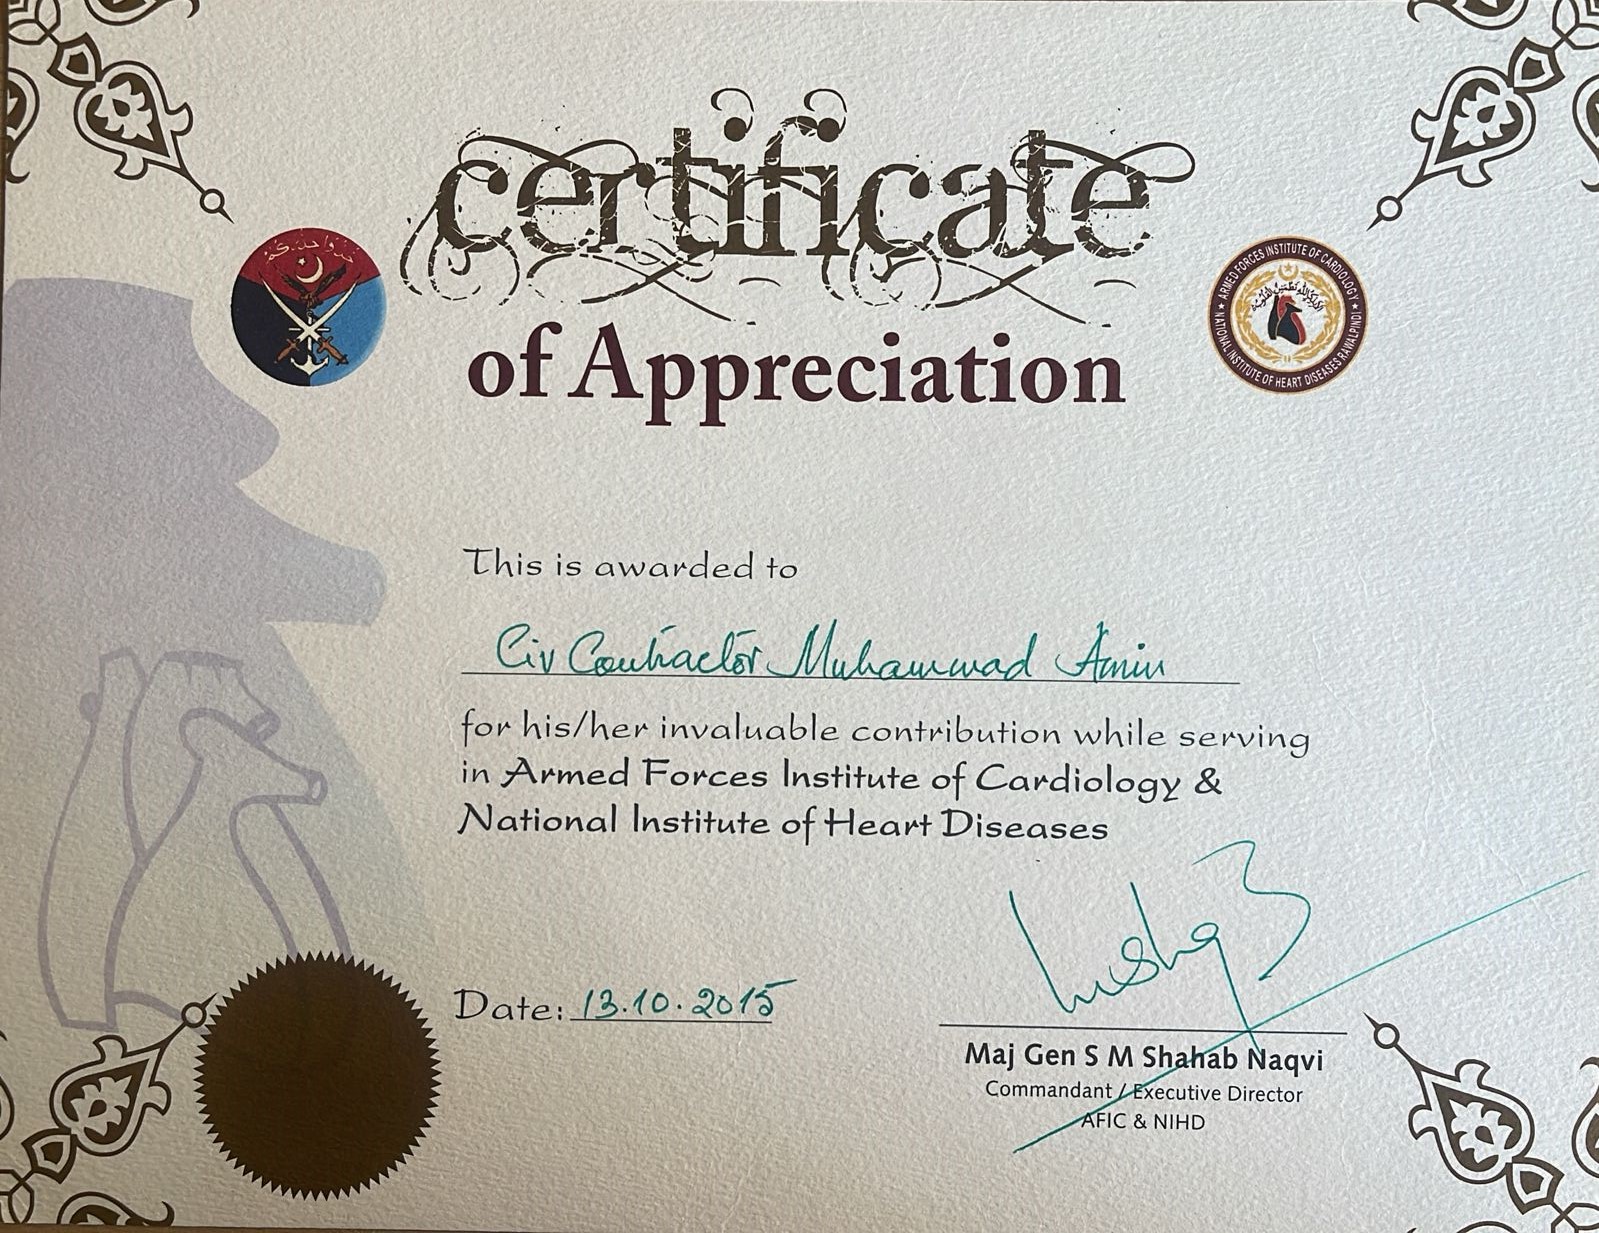 certificate
of Appreciation
ARMED FORCES INSTITUTE OF CARDIOLOGY
NATIONAL INSTITUTE OF HEART DISEASES RAWALPINDI
This is awarded to
Civ Contractor Muhammad Amin
for his/her invaluable contribution while serving
in Armed Forces Institute of Cardiology &
National Institute of Heart Diseases
Date: 13.10.2015
Maj Gen S M Shahab Naqvi
Commandant / Executive Director
AFIC & NIHD